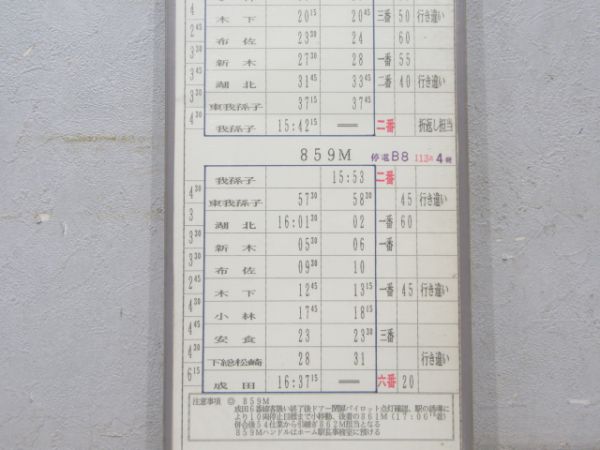 4
木下 20 15 20 45 三番 50 行き違い
2 45
布佐 23 30 24 60
3 30
新木 27 30 28 一番 55
3 30
湖北 31 45 33 45 二番 40 行き違い
3 30
東我孫子 37 15 37 45
4 30
我孫子 15:42 15 ― 二番 折返し担当
859M 停電B8 113系4両
我孫子 15:53 二番
4 30
東我孫子 57 30 58 30 45 行き違い
3
湖北 16:01 30 02 一番 60
3 30
新木 05 30 06 一番
3 30
布佐 09 30 10
2 45
木下 12 45 13 15 一番 45 行き違い
4 30
小林 17 45 18 15
4 45
安食 23 23 30 三番
4 30
下総松崎 28 31 行き違い
6 15
成田 16:37 15 ― 六番 20
注意事項 ◎ 859M
859Mハンドルはホーム駅長事務室に預ける